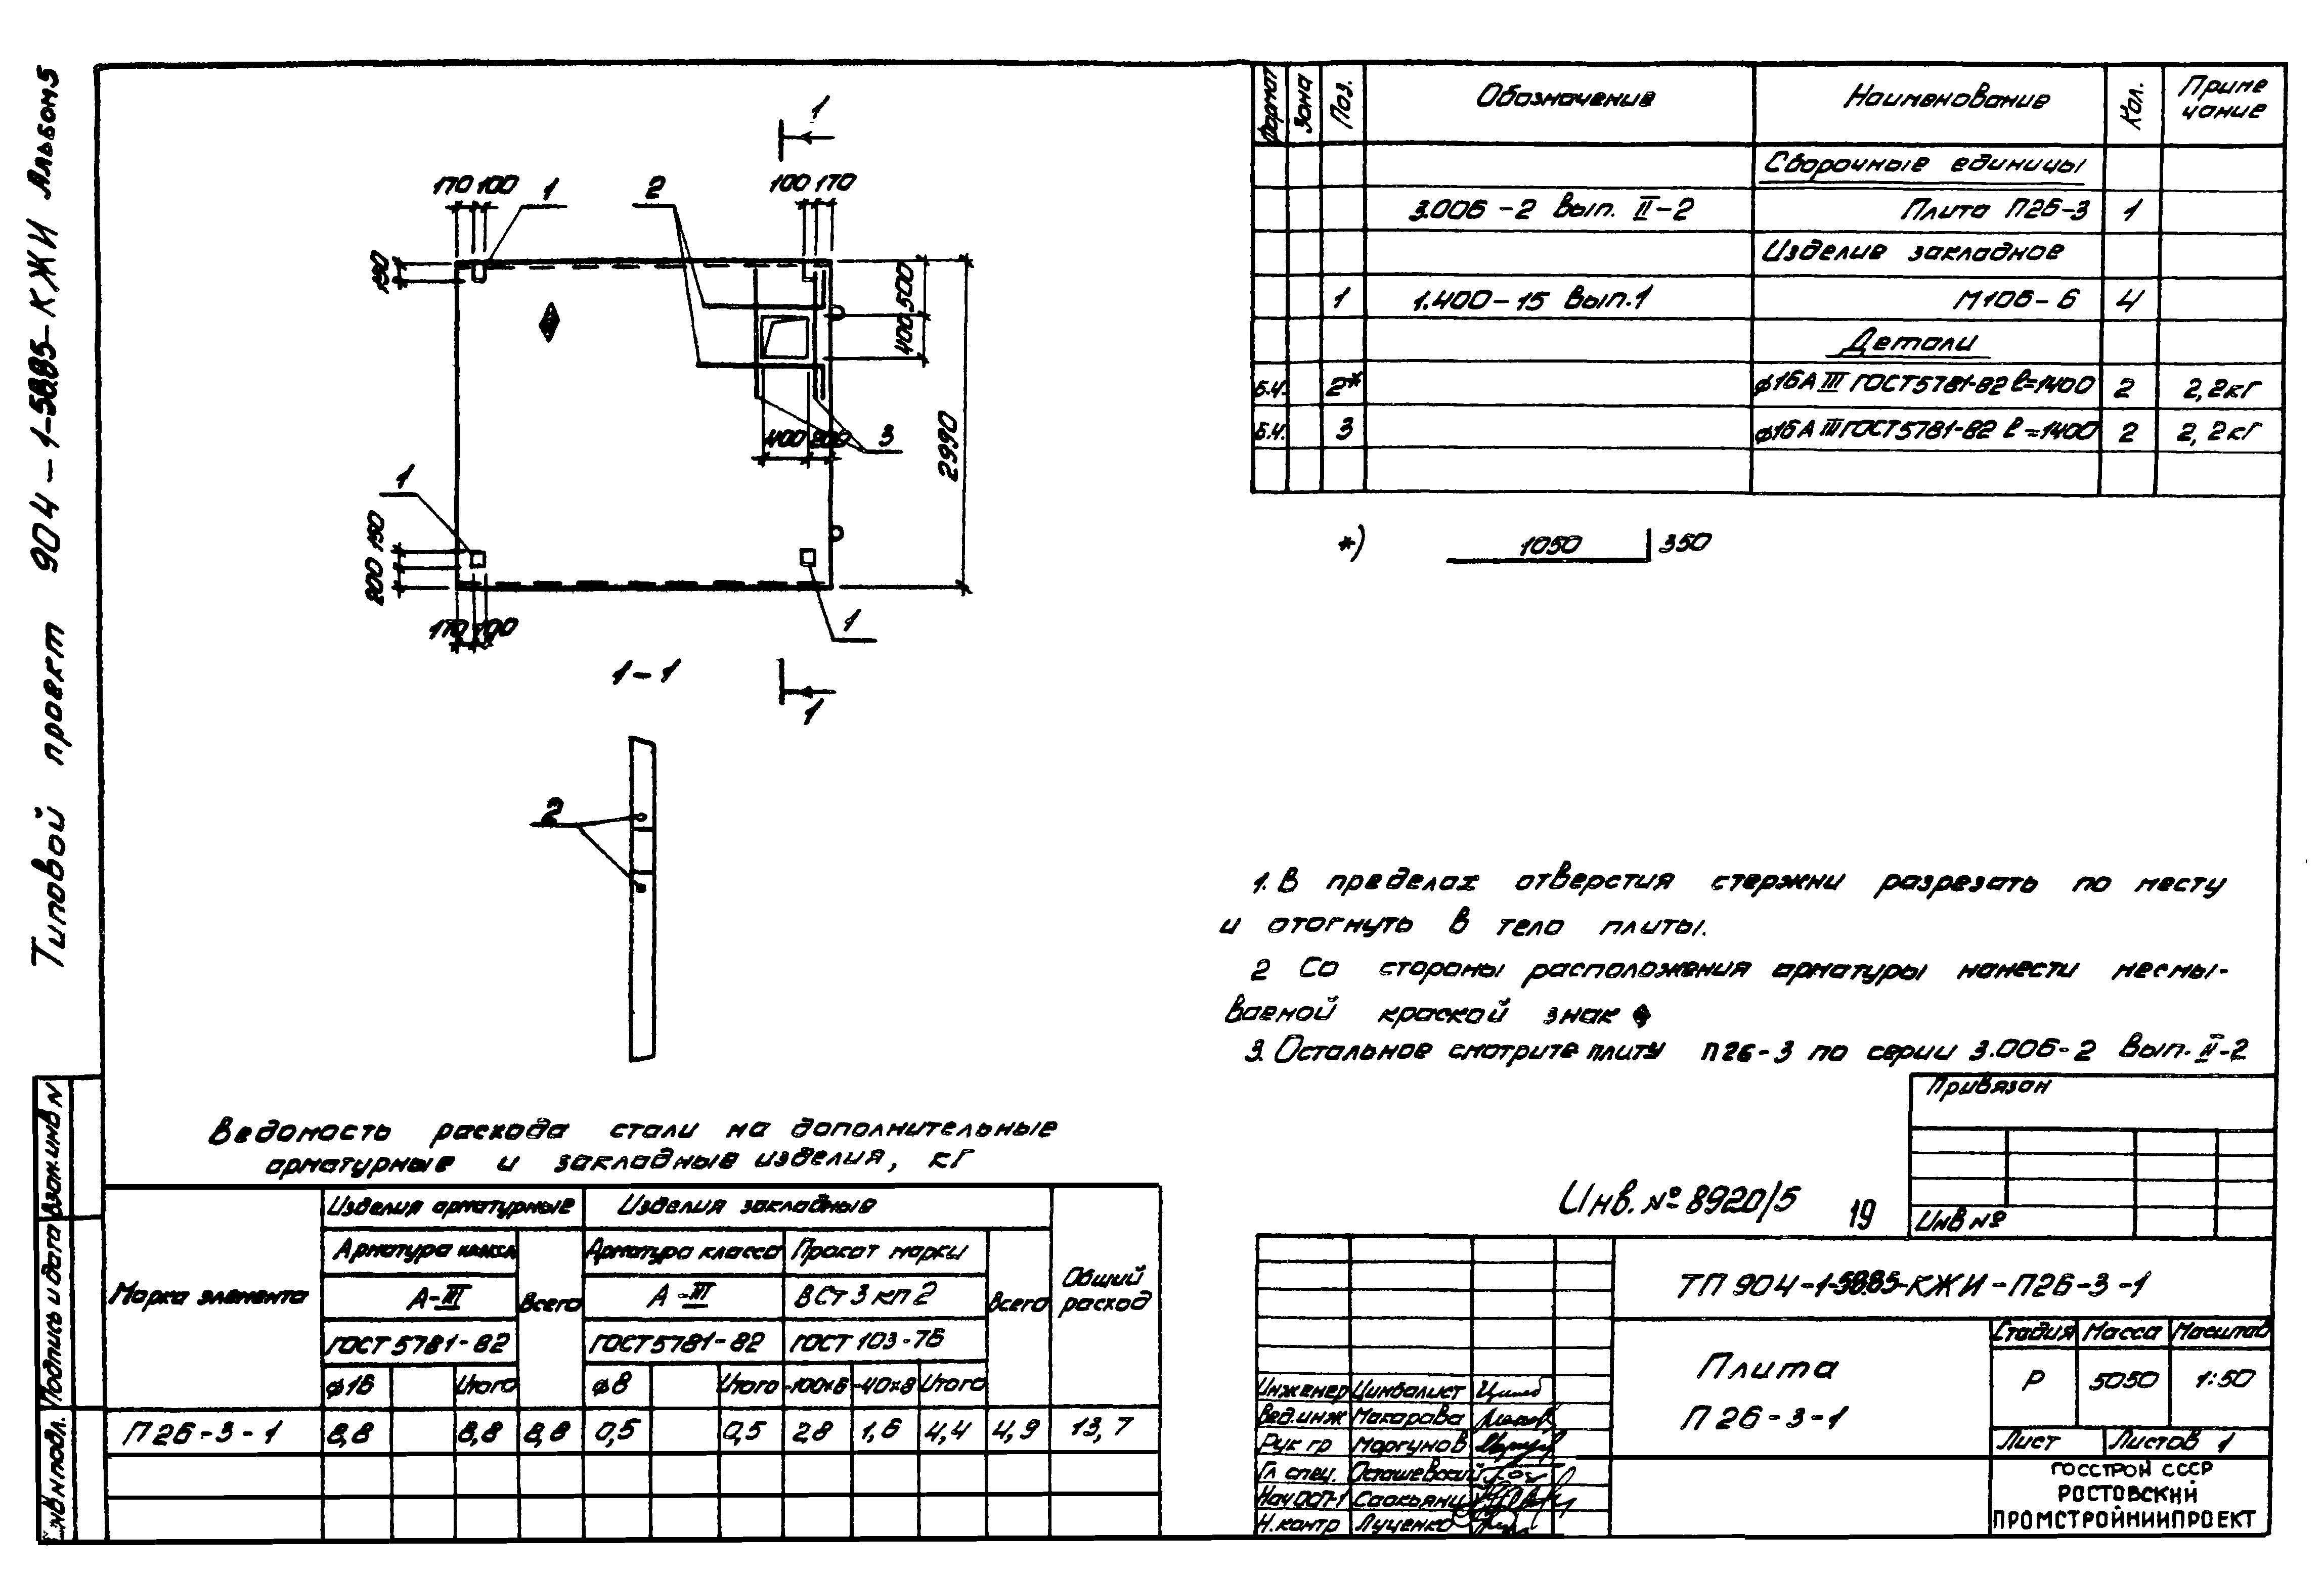 Типовой проект 904-1-58.85-КЖИ Альбом 5
1
170 100
1
2
100 170
150
500
400
400 200
3
2990
1
150
200
170 100
1
1-1
1
2
Формат
Зона
Поз.
Обозначение
Наименование
Кол.
Приме
чание
Сборочные единицы
3.006-2 Вып. II-2 Плита П26-3 1
Изделие закладное
1 1.400-15 Вып.1 М106-6 4
Детали
Б.Ч. 2* ф16 А III ГОСТ 5781-82 ℓ=1400 2 2,2кг
Б.Ч. 3 ф16 А III ГОСТ 5781-82 ℓ=1400 2 2,2кг
*) 1050 350
1. В пределах отверстия стержни разрезать по месту
и отогнуть в тело плиты.
2 Со стороны расположения арматуры нанести несмы-
ваемой краской знак
3. Остальное смотрите плиту П26-3 по серии 3.006-2 Вып. II-2
Ведомость расхода стали на дополнительные
арматурные и закладные изделия, кг
Марка элемента
Изделия арматурные
Изделия закладные
Общий
расход
Арматура класса
Всего
Арматура класса
Прокат марки
Всего
А-III
А-III
ВСт 3 кп 2
ГОСТ 5781-82
ГОСТ 5781-82
ГОСТ 103-76
ф16 Итого ф8 Итого -100х6 -40х8 Итого
П26-3-1 8,8 8,8 8,8 0,5 0,5 2,8 1,6 4,4 4,9 13,7
Взам.инв N
Подпись и дата
Инв N подл.
Привязан
Инв №
Инв. № 8920/5 19
ТП 904-1-58.85-КЖИ-П26-3-1
Плита
П 26-3-1
Стадия Масса Масштаб
Р 5050 1:50
Лист Листов 1
ГОССТРОЙ СССР
РОСТОВСКИЙ
ПРОМСТРОЙНИИПРОЕКТ
Инженер Цимбалист
Вед.инж Макарова
Рук гр Моргунов
Гл спец. Осташевский
Нач ОСП-1 Саакьянц
Н.контр Луценко